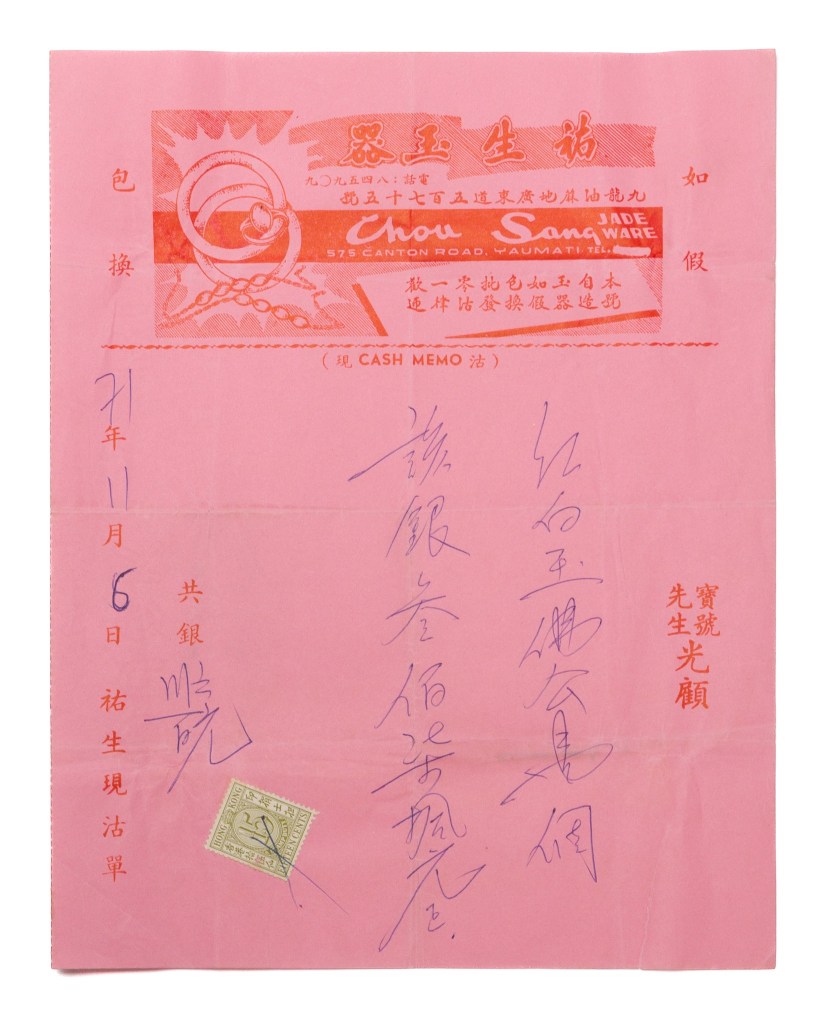 如假
包換
祐生玉器
電話：八四五九〇九
九龍油麻地廣東道五百七十五號
Chou Sang JADE WARE
575 CANTON ROAD, YAUMATI. TEL.
本號自造玉器如假包換批發零沽一律歡迎
(現 CASH MEMO 沽)
寶號
先生
光顧
紅白玉佛公壹個
該銀叁佰柒拾元正
共銀
HONG KONG
15
CENTS
71年11月6日 祐生現沽單